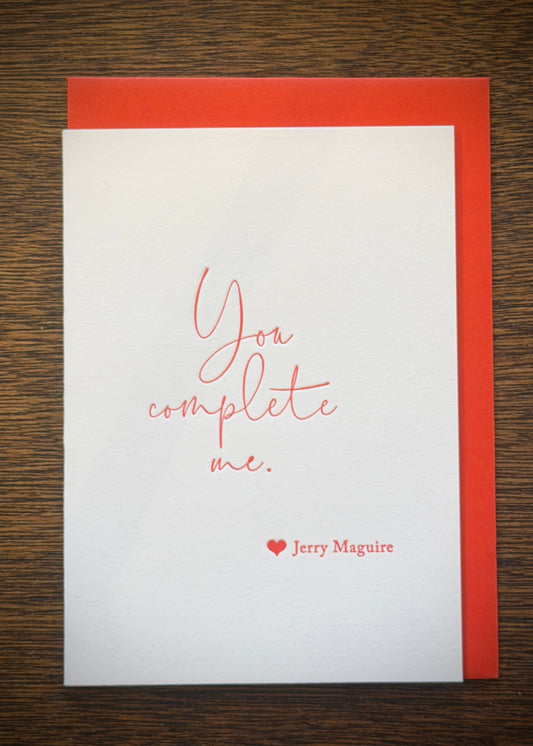 You
complete
me.
Jerry Maguire